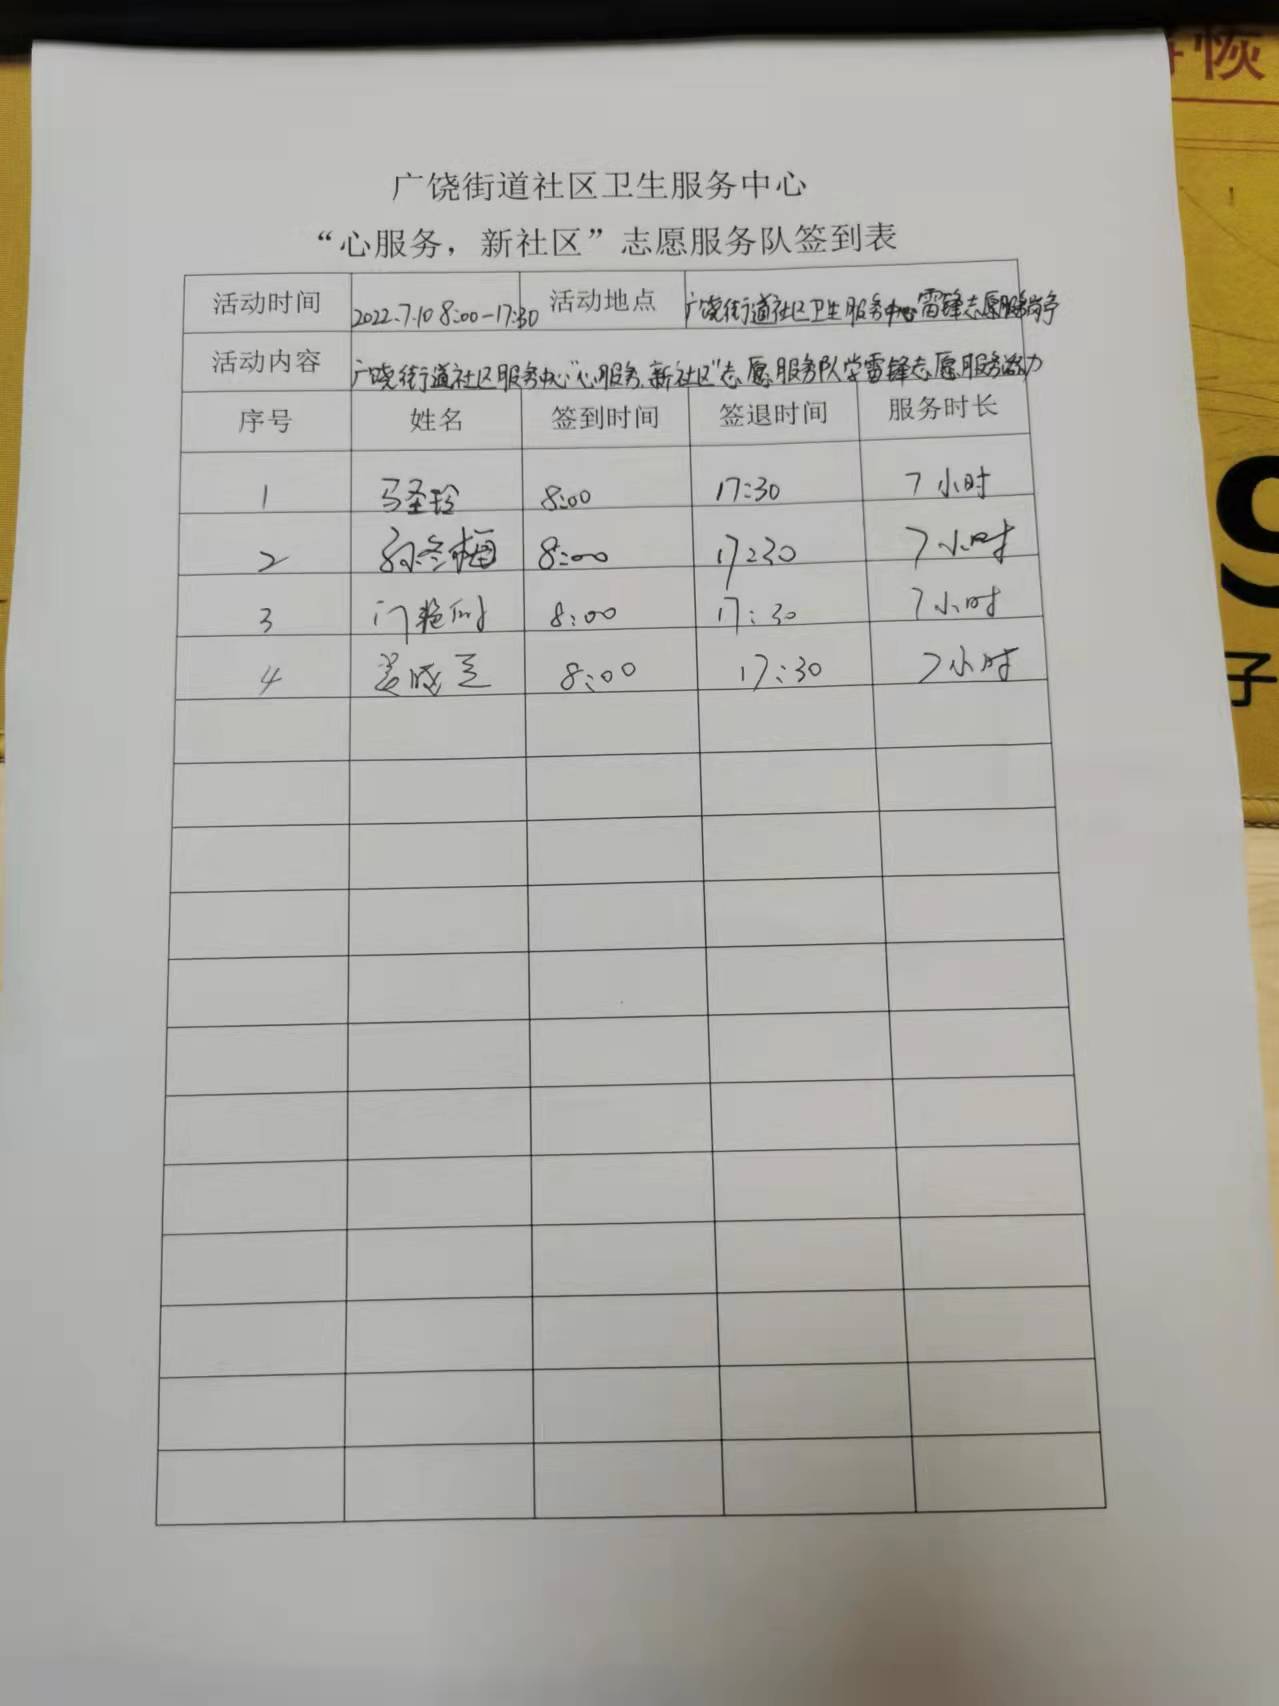 恢
广饶街道社区卫生服务中心
“心服务，新社区”志愿服务队签到表
活动时间 2022.7.10 8:00-17:30 活动地点 广饶街道社区卫生服务中心雷锋志愿服务岗亭
活动内容 广饶街道社区服务中心“心服务、新社区”志愿服务队学雷锋志愿服务活动
序号 姓名 签到时间 签退时间 服务时长
1 马圣玲 8:00 17:30 7小时
2 孙冬梅 8:00 17:30 7小时
3 门艳 8:00 17:30 7小时
4 姜晓 8:00 17:30 7小时
9
子